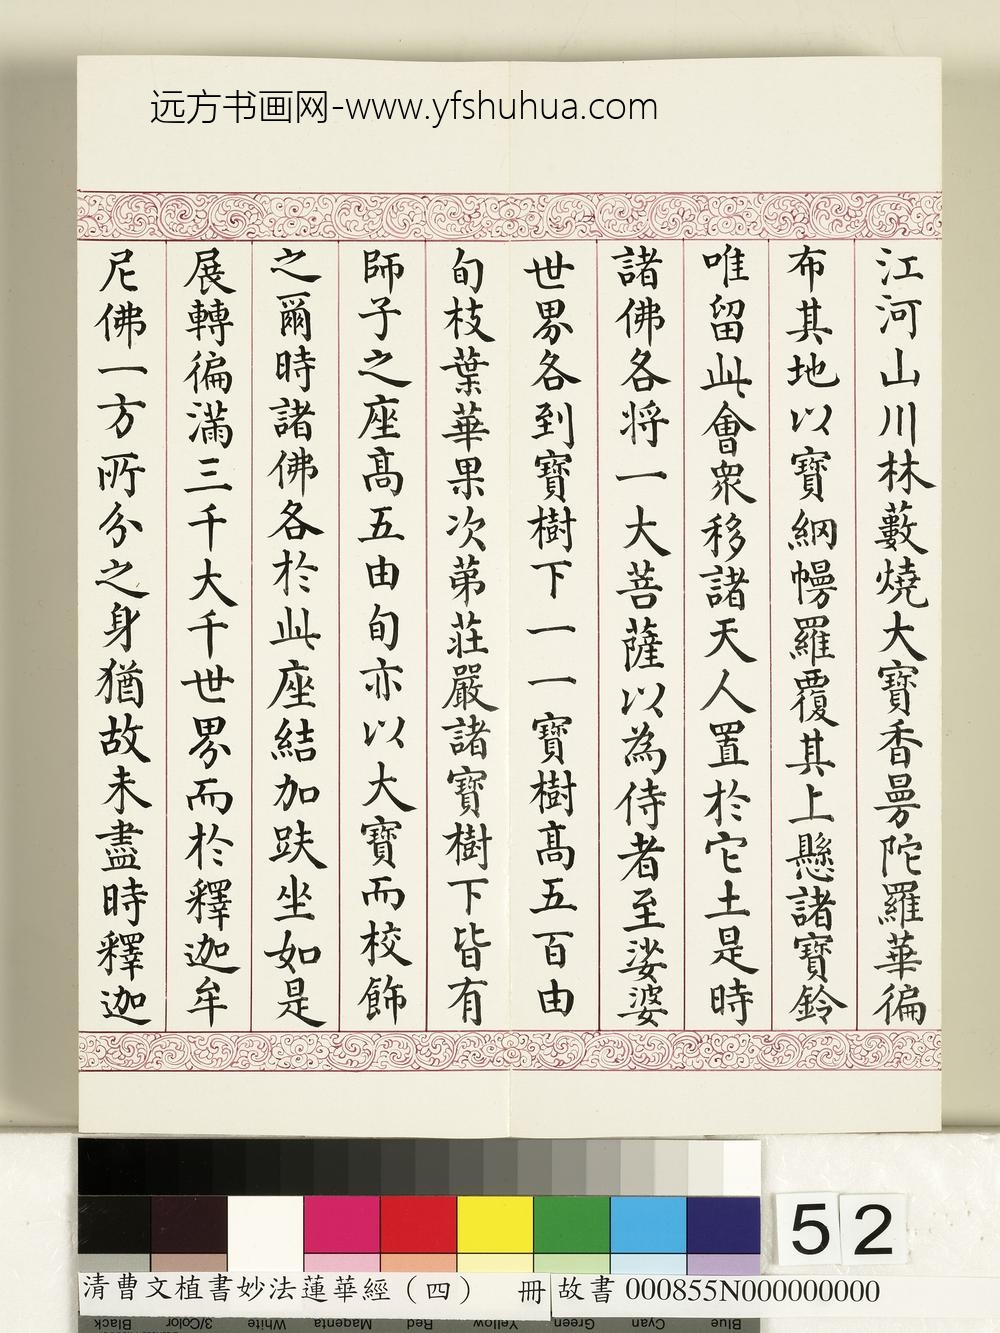 远方书画网-www.yfshuhua.com
江河山川林藪燒大寶香曼陀羅華徧
布其地以寶網幔羅覆其上懸諸寶鈴
唯留此會眾移諸天人置於它土是時
諸佛各將一大菩薩以為侍者至娑婆
世界各到寶樹下一一寶樹高五百由
旬枝葉華果次第莊嚴諸寶樹下皆有
師子之座高五由旬亦以大寶而校飾
之爾時諸佛各於此座結加趺坐如是
展轉徧滿三千大千世界而於釋迦牟
尼佛一方所分之身猶故未盡時釋迦
52
清曹文植書妙法蓮華經（四） 冊
故書 000855N000000000
Black 3/Color White Magenta Red Yellow Green Cyan Blue